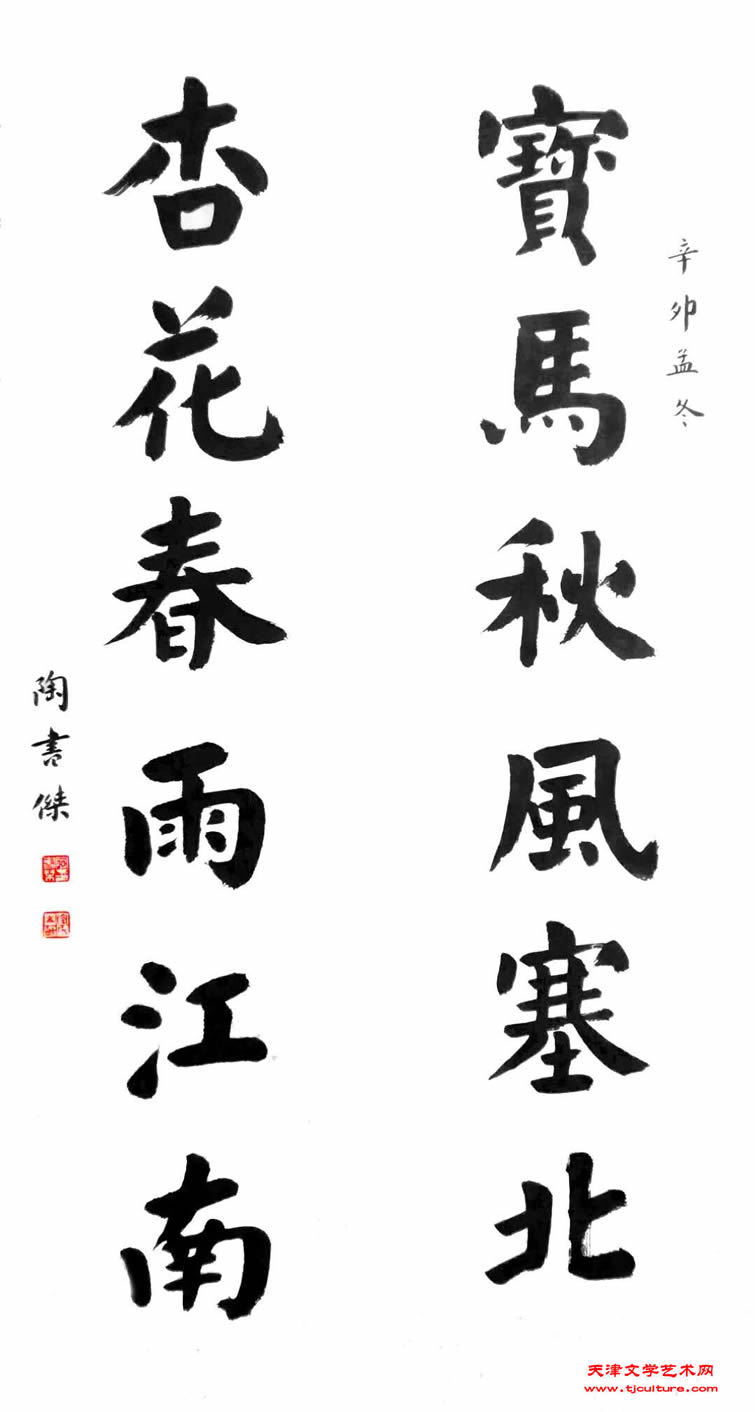 辛卯孟冬
寶馬秋風塞北
杏花春雨江南
陶書傑
天津文学艺术网
www.tjculture.com